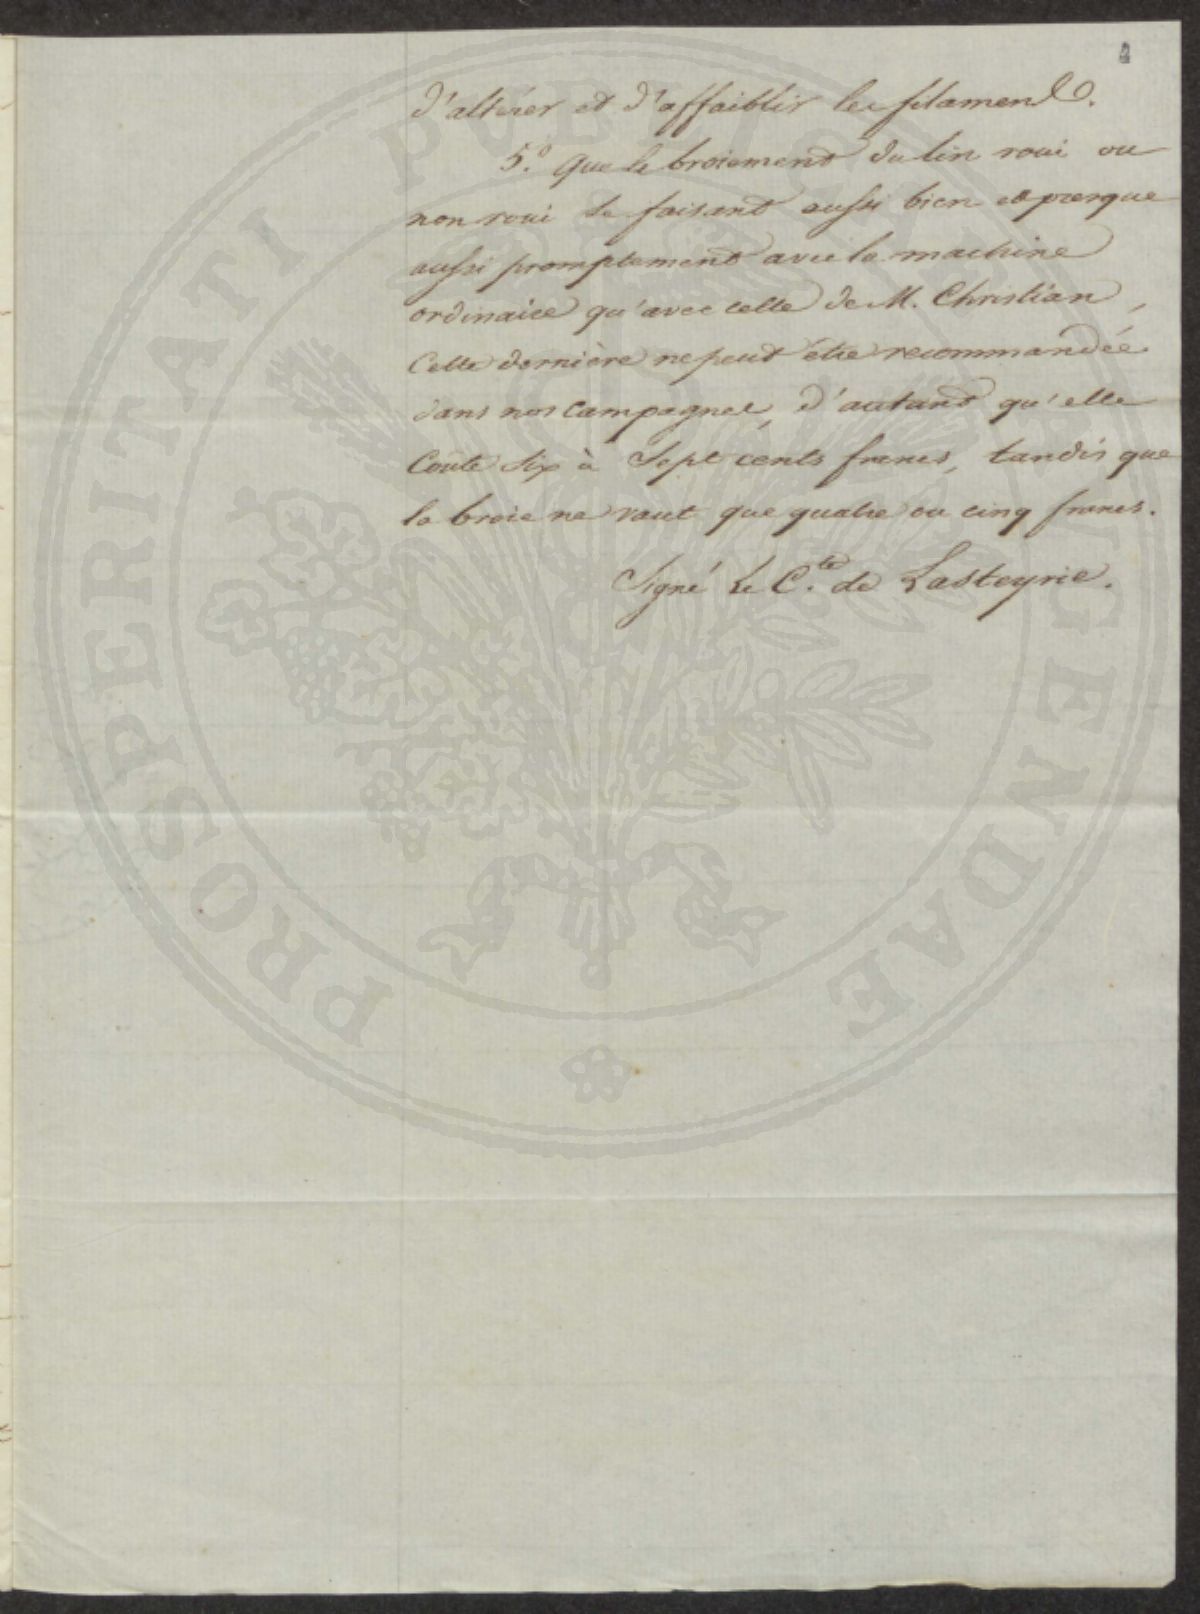 4
d'altérer et d'affaiblir les filamens.
5.º Que le broiement du lin roui ou
non roui se faisant aussi bien et presque
aussi promptement avec la machine
ordinaire qu'avec celle de M. Christian,
Cette dernière ne peut être recommandée
dans nos Campagnes, d'autant qu'elle
Coûte Six à Sept cents francs, tandis que
la broie ne vaut que quatre ou cinq francs.
Signé Le C.te de Lasteyrie.
PROSPERITATI PUBLICAE AUGENDAE